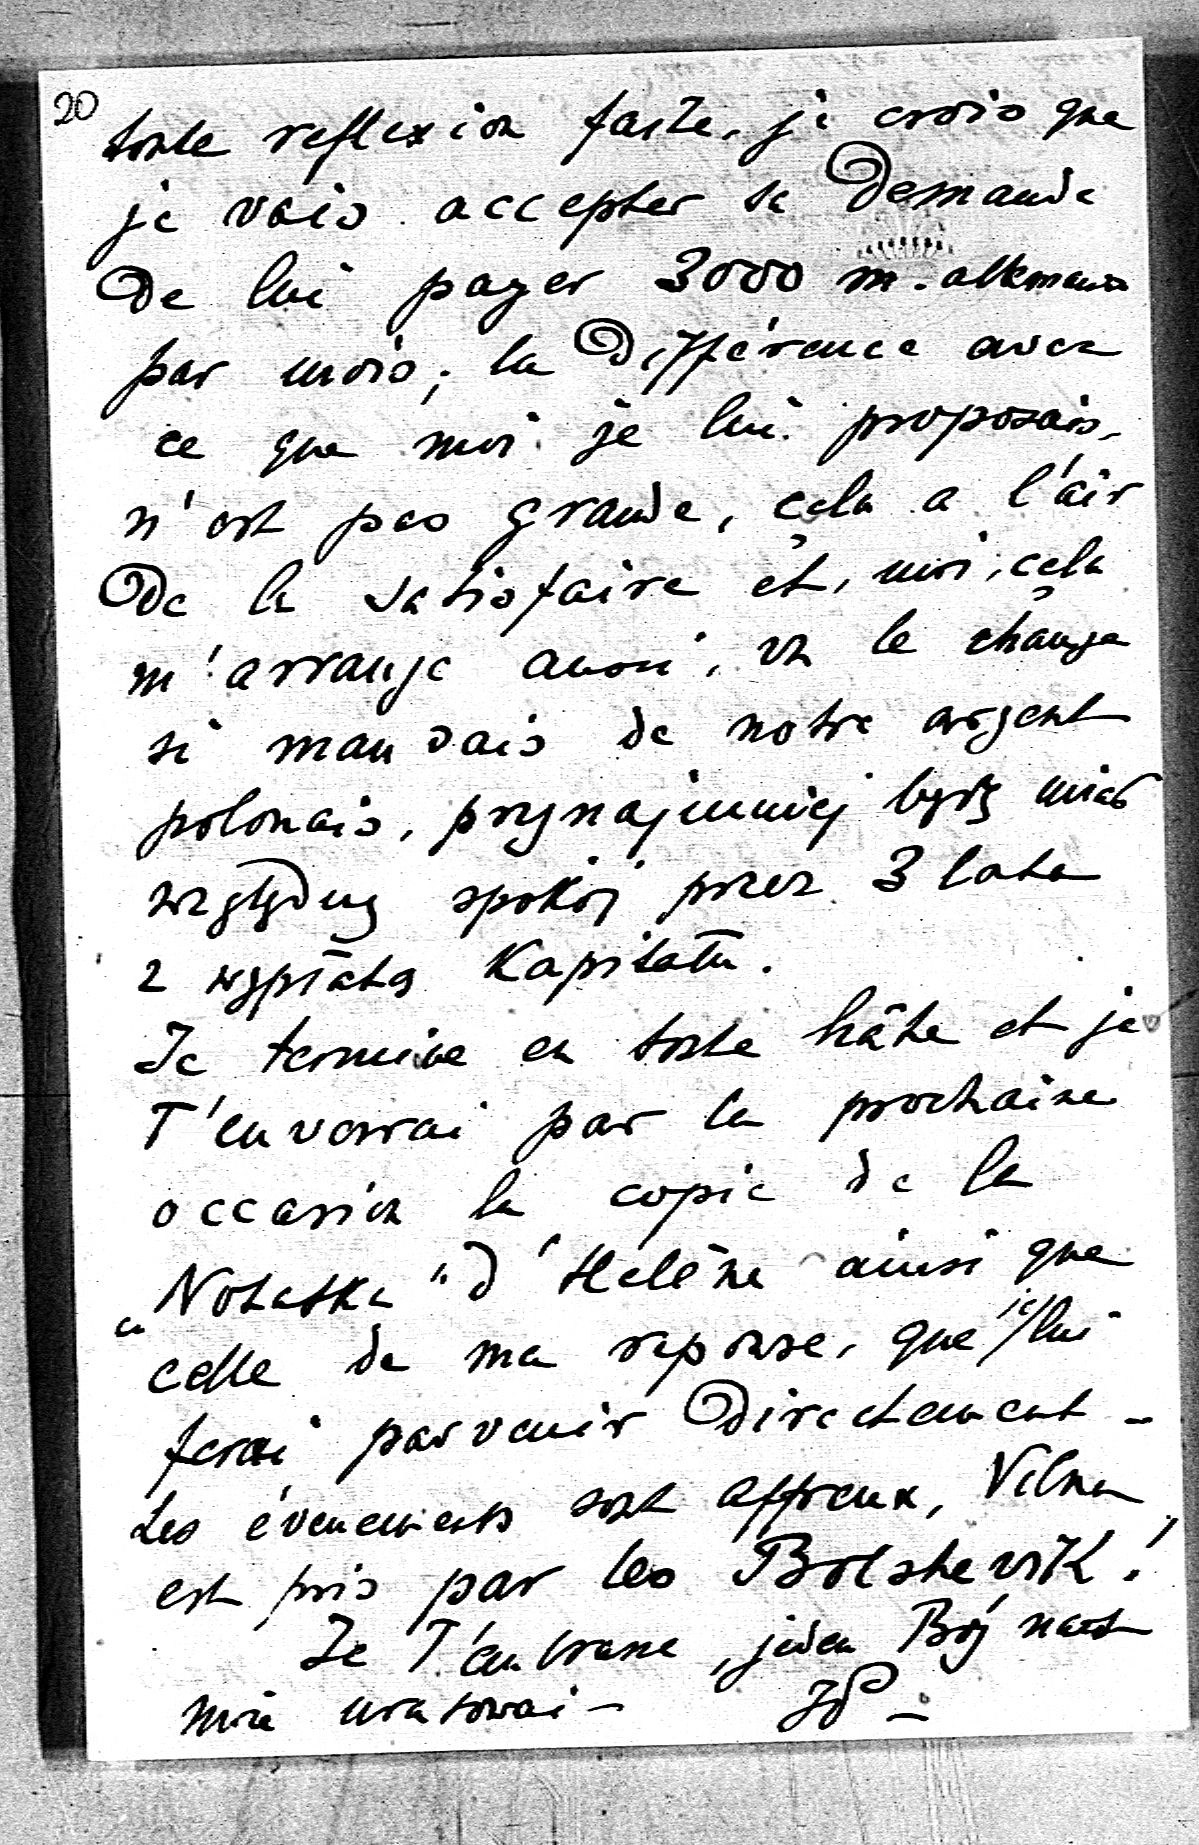 20
toute reflexion faite, je crois que
je vais accepter sa Demande
De lui payer 3000 m. allemands
par mois; la Différence avec
ce que moi je lui proposais,
n'est pas grande, cela a l'air
De la satisfaire et, moi, cela
m'arrange aussi, vu le change
si mauvais de notre argent
polonais, przynajmniej będę miał
względny spokój przez 3 lata
z wypłatą Kapitału.
Je termine en toute hâte et je
T'enverrai par la prochaine
occasion la copie de la
„Notatka" d'Helène ainsi que
celle de ma reponse, que je lui
ferai parvenir Directement -
Les évenements sont affreux, Vilna
est pris par les Bolshevik!
Je T'embrasse, jeden Bój nas